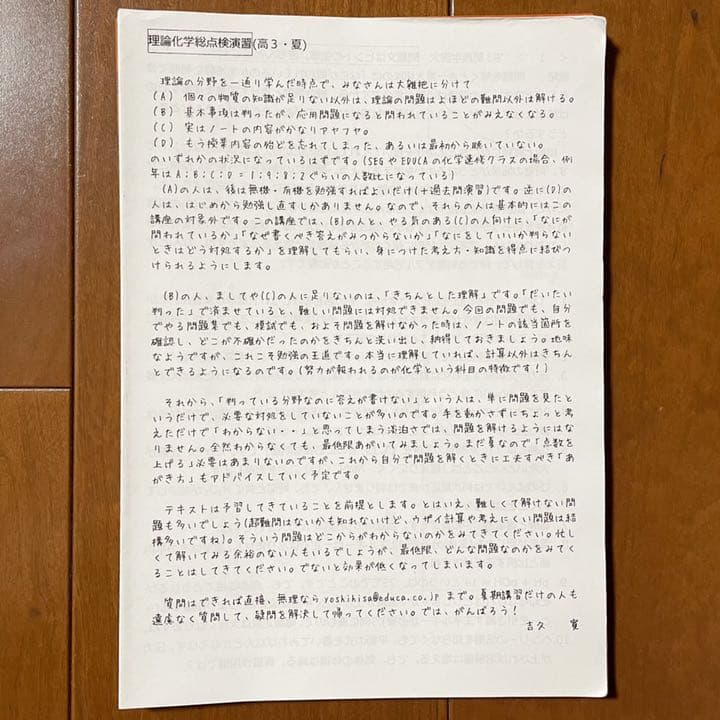 理論化学総点検演習(高3・夏)
理論の分野を一通り学んだ時点で、みなさんは大雑把に分けて
(A) 個々の物質の知識が足りない以外は、理論の問題はよほどの難問以外は解ける。
(B) 基本事項は判ったが、応用問題になると問われていることがみえなくなる。
(C) 実はノートの内容がかなりアヤフヤ。
(D) もう授業内容の殆どを忘れてしまった、あるいは最初から聴いていない。
のいずれかの状況になっているはずです。(SEGやEDUCAの化学連修クラスの場合、例
年はA:B:C:D=1:9:8:2ぐらいの人数比になっている)
(A)の人は、後は無機・有機を勉強すればよいだけ(+過去問演習)です。逆に(D)の
人は、はじめから勉強し直すしかありません。なので、それらの人は基本的にはこの
講座の対象外です。この講座では、(B)の人と、やる気のある(C)の人向けに、「なにが
問われているか」「なぜ書くべき答えがみつからないか」「なにをしていいか判らない
ときはどう対処するか」を理解してもらい、身につけた考え方・知識を得点に結びつ
けられるようにします。
(B)の人、ましてや(C)の人に足りないのは、「きちんとした理解」です。「だいたい
判った」で済ませていると、難しい問題には対処できません。今回の問題でも、自分
でやる問題集でも、模試でも、およそ問題を解けなかった時は、ノートの該当箇所を
確認し、どこが不確かだったのかをきちんと洗い出し、納得しておきましょう。地味
なようですが、これこそ勉強の王道です。本当に理解していれば、計算以外はきちん
とできるようになるのです。(努力が報われるのが化学という科目の特徴です!)
それから、「判っている分野なのに答えが書けない」という人は、単に問題を見たと
いうだけで、必要な対処をしていないことが多いのです。手を動かさずにちょっと考
えただけで「わからない・・」と思ってしまう淡泊さでは、問題を解けるようにはな
りません。全然わからなくても、最低限あがいてみましょう。まだ夏なので「点数を
上げる」必要はあまりないのですが、これから自分で問題を解くときに工夫すべき「あ
がき方」もアドバイスしていく予定です。
テキストは予習してきていることを前提とします。とはいえ、難しくて解けない問
題も多いでしょう(超難問はないかも知れないけど、ウザイ計算や考えにくい問題は結
構多いですね)。そういう問題はどこからがわからないのかをみてきてください。忙し
くて解いてみる余裕のない人もいるでしょうが、最低限、どんな問題なのかをみてく
ることはしてきてください。でないと効果が低くなってしまいます。
質問はできれば直接、無理ならyoshihisa@educa.co.jpまで。夏期講習だけの人も
遠慮なく質問して、疑問を解決して帰ってください。では、がんばろう!
吉久 寛